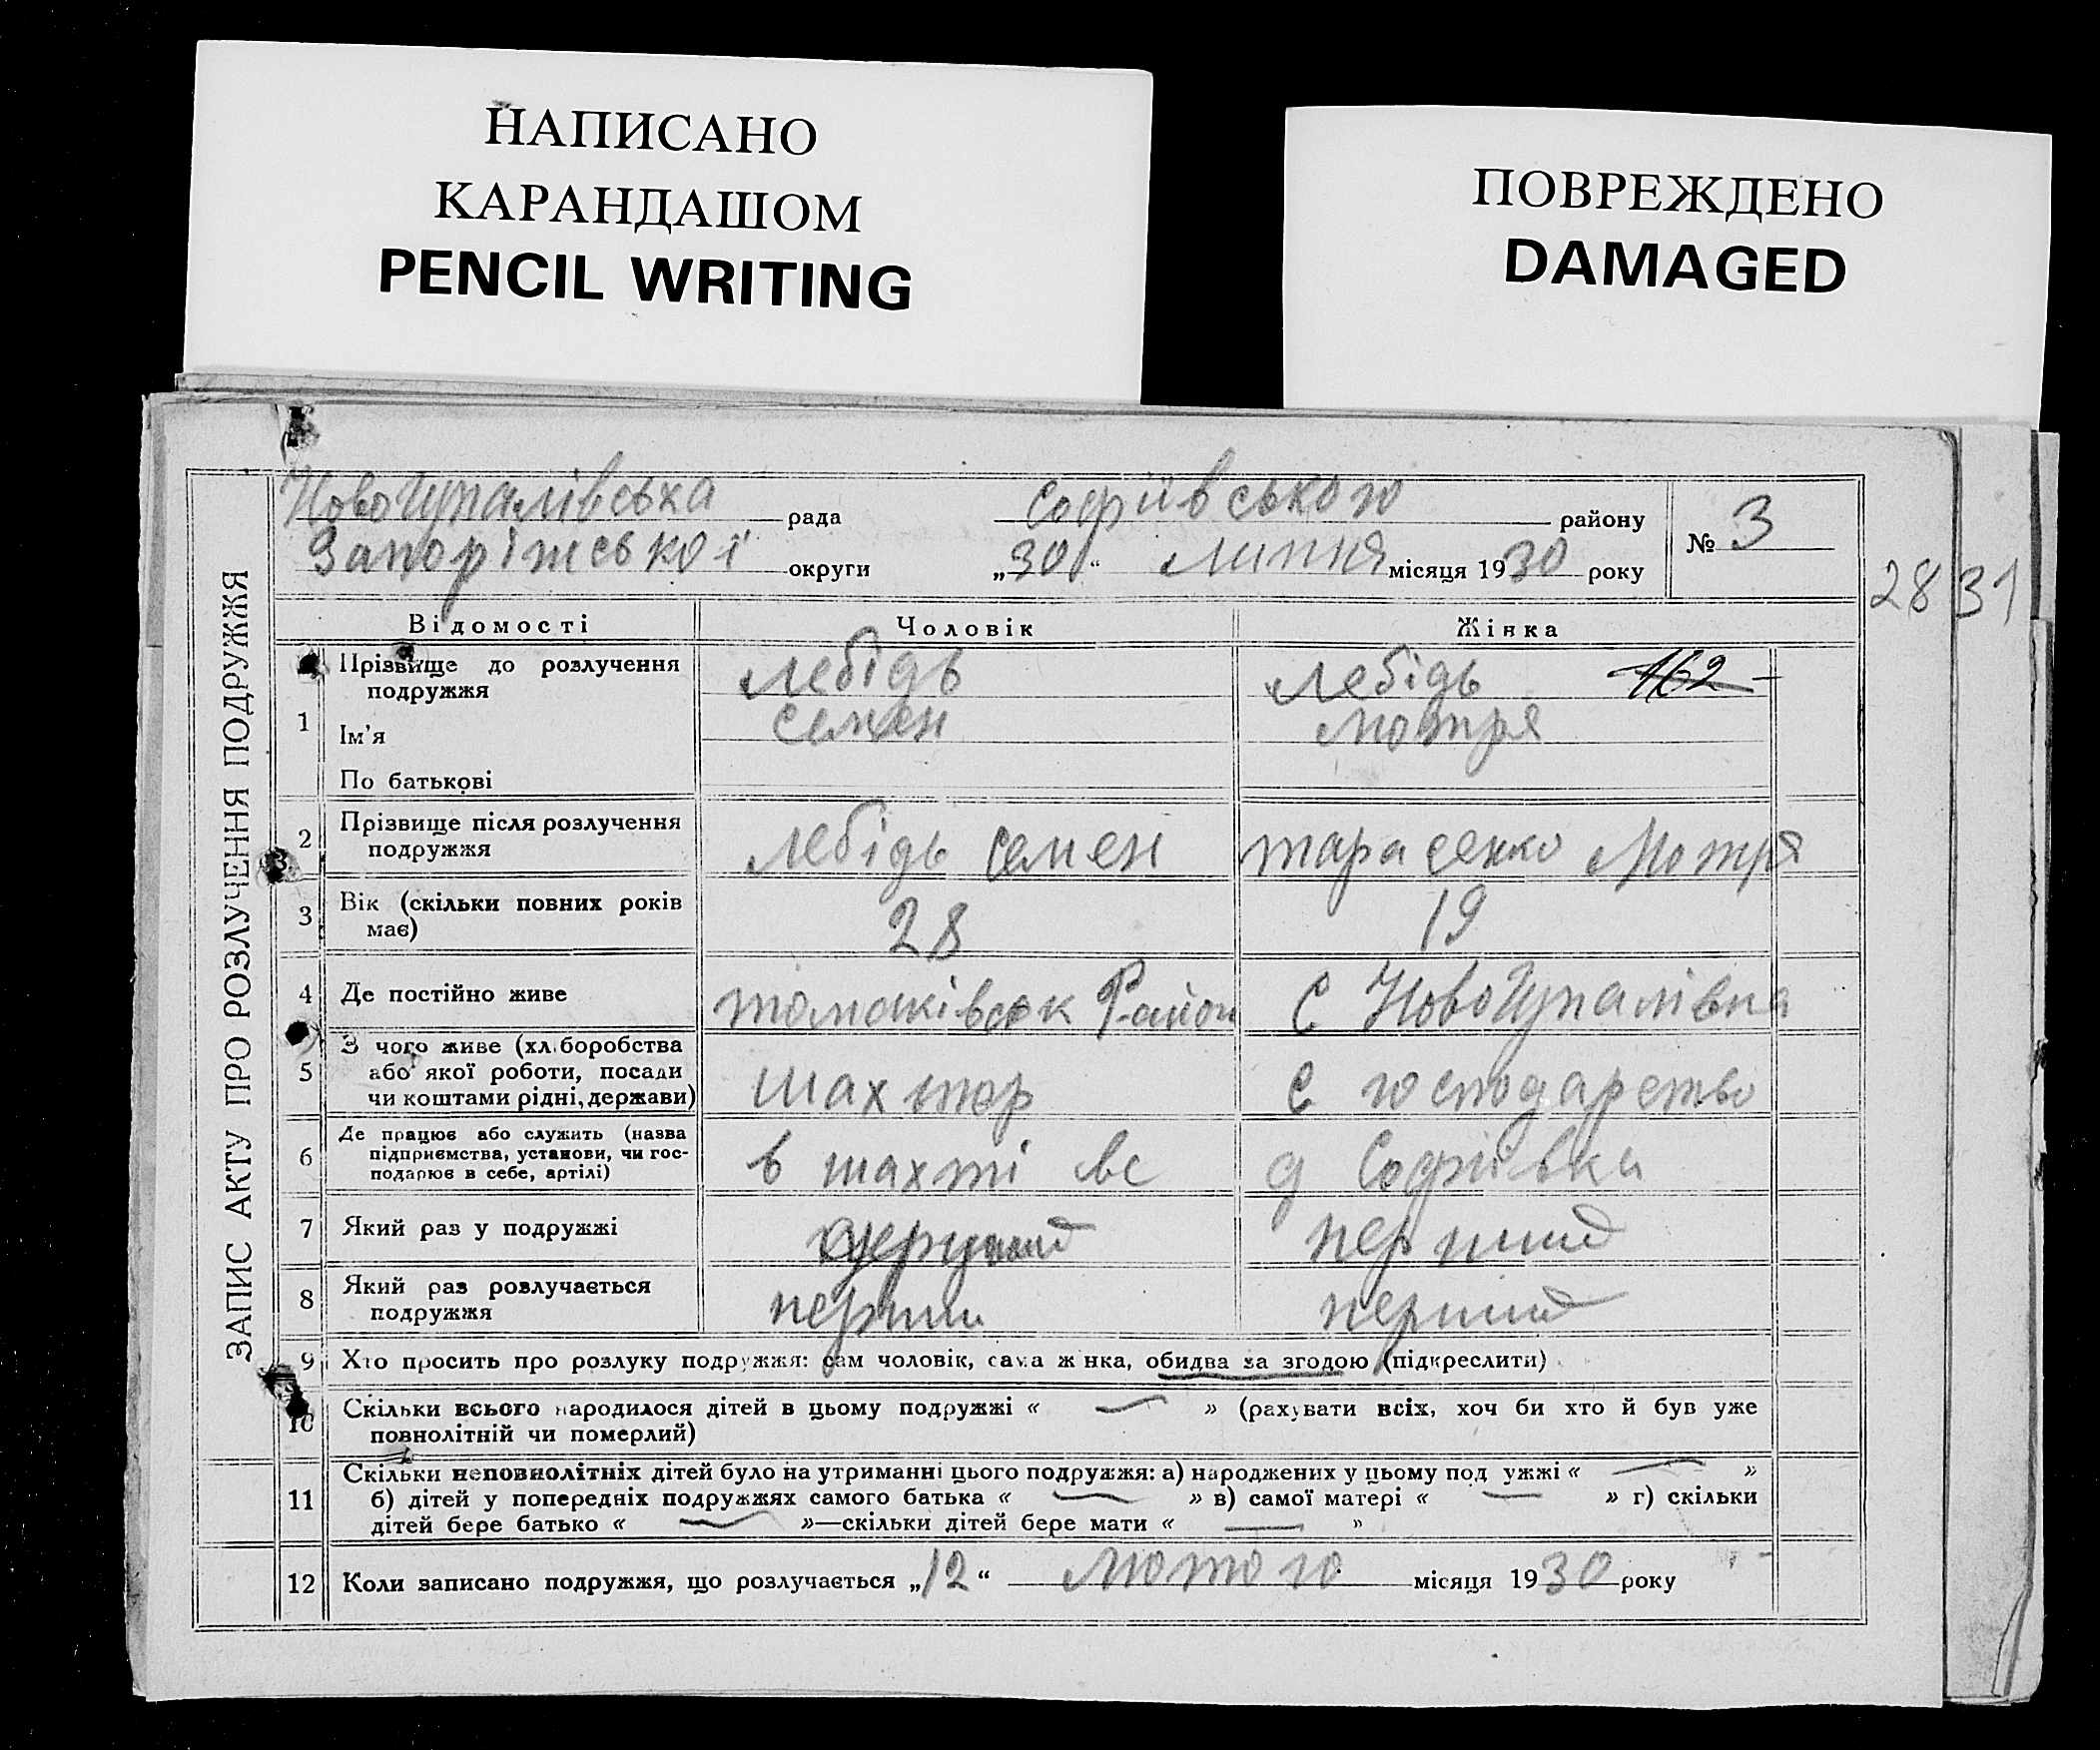 НАПИСАНО
КАРАНДАШОМ
PENCIL WRITING
ПОВРЕЖДЕНО
DAMAGED
ЗАПИС АКТУ ПРО РОЗЛУЧЕННЯ ПОДРУЖЖЯ
НовоГупалівська рада Софіівського району № 3
Запоріжської округи „30“ липня місяця 1930 року
28 31
Відомості Чоловік Жінка
Прізвище до розлучення Лебідь Лебідь 162
подружжя
1 Ім'я Семен Мотря
По батькові
2 Прізвище після розлучення Лебідь Семен Тарасенко Мотря
подружжя
3 Вік (скільки повних років 28 19
має)
4 Де постійно живе Район с НовоГупалівка
З чого живе (хліборобства
5 або якої роботи, посади шахтор с господарство
чи коштами рідні, держави)
Де працює або служить (назва
6 підприємства, установи, чи гос- в шахті д Софіівки
подарює в себе, артілі)
7 Який раз у подружжі перший
8 Який раз розлучається перши перший
подружжя
9 Хто просить про розлуку подружжя: сам чоловік, сама жінка, обидва за згодою (підкреслити)
10 Скільки всього народилося дітей в цьому подружжі « — » (рахувати всіх, хоч би хто й був уже
повнолітній чи померлий)
Скільки неповнолітніх дітей було на утриманні цього подружжя: а) народжених у цьому подружжі « — »
11 б) дітей у попередніх подружжях самого батька « — » в) самої матері « — » г) скільки
дітей бере батько « — »—скільки дітей бере мати « — »
12 Коли записано подружжя, що розлучається „12“ Лютого місяця 1930 року